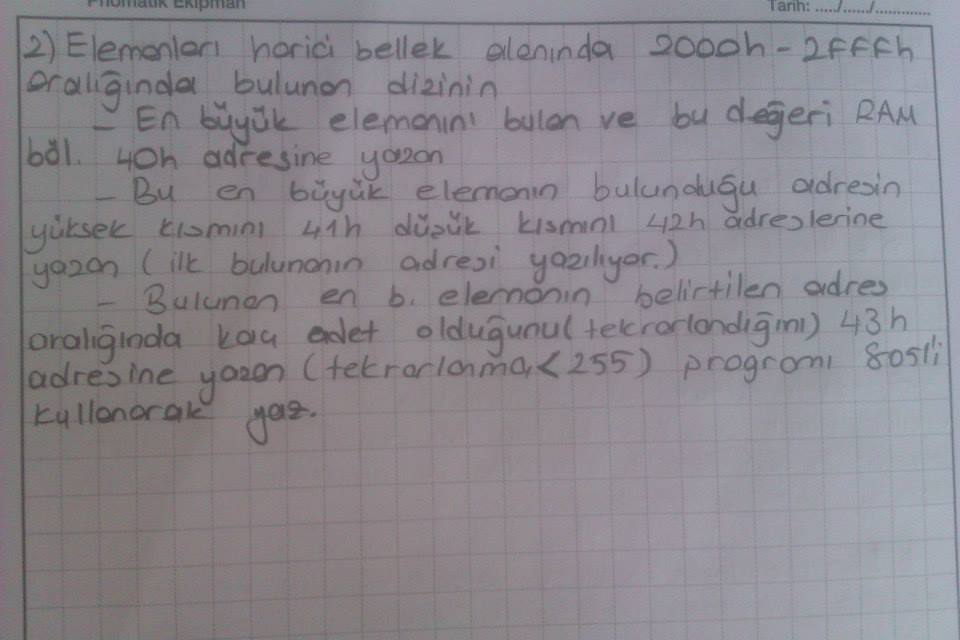 Pnomatik Ekipman
Tarih: ...../....../.............
2) Elemanları harici bellek alanında 2000h - 2FFFh
aralığında bulunan dizinin
- En büyük elemanını bulan ve bu değeri RAM
böl. 40h adresine yazan
- Bu en büyük elemanın bulunduğu adresin
yüksek kısmını 41h düşük kısmını 42h adreslerine
yazan (ilk bulunanın adresi yazılıyor.)
- Bulunan en b. elemanın belirtilen adres
aralığında kaç adet olduğunu(tekrarlandığını) 43h
adresine yazan (tekrarlanma,<255) programı 8051'i
kullanarak yaz.